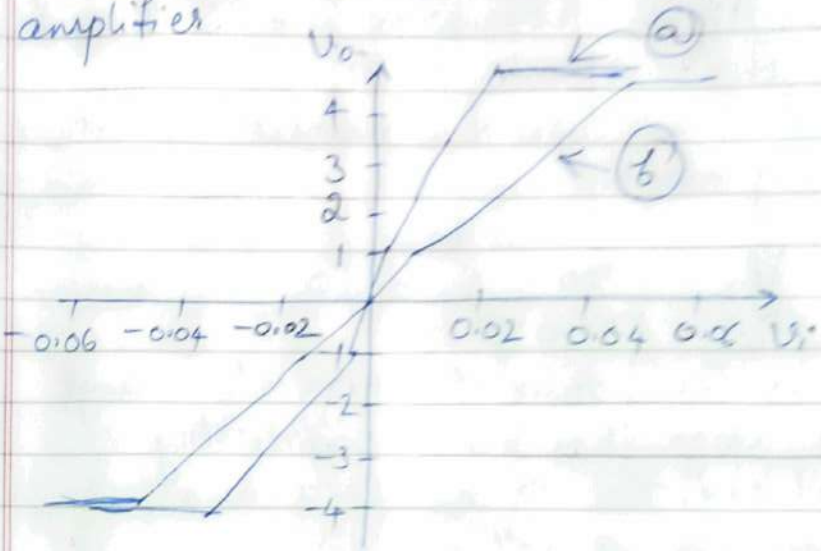 amplifier
Vo
a
4
3
b
2
1
-0.06 -0.04 -0.02 0.02 0.04 0.06 Vi
-1
-2
-3
-4